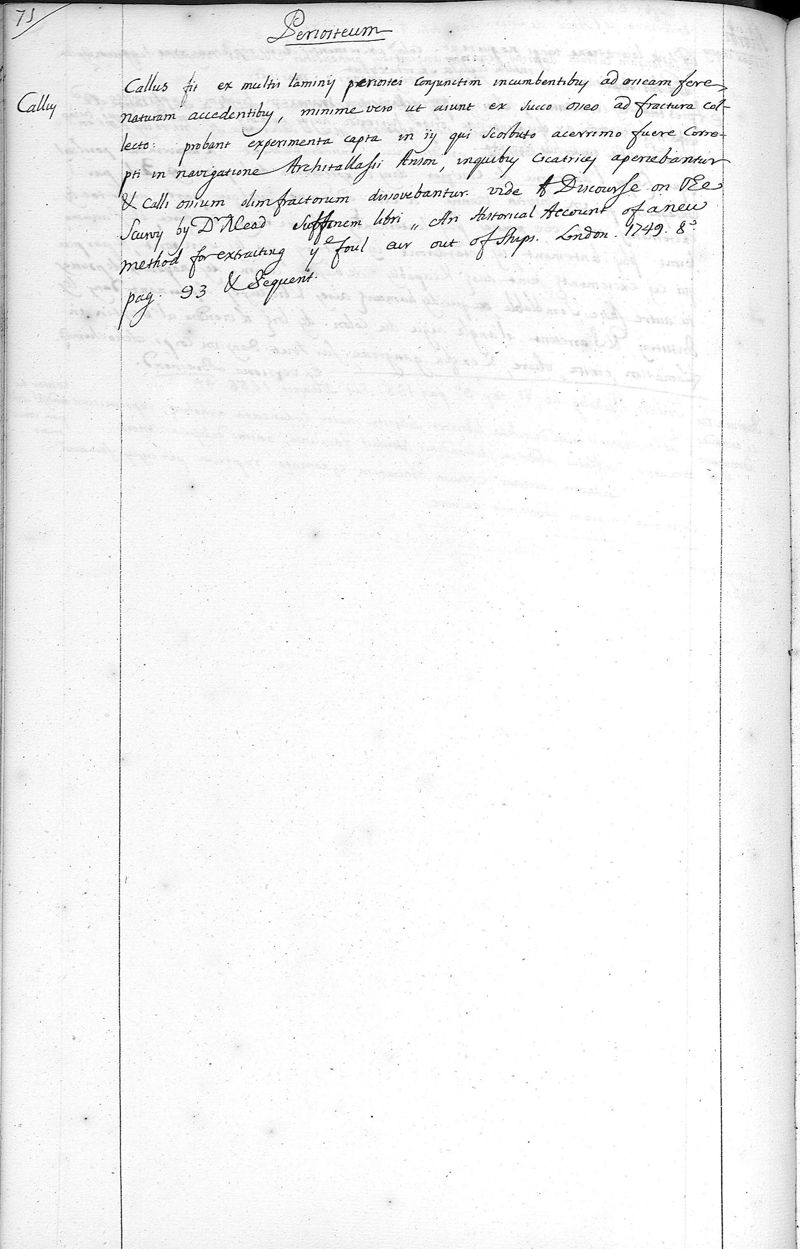 71
Periosteum
Callus
Callus fit ex multis laminis periostei conjunctim incumbentibus ad osseam fere
naturam accedentibus, minime vero ut aiunt ex succo osseo ad fractura col-
lecto: probant experimenta capta in iis qui scorbuto acerrimo fuere corre-
pti in navigatione Architallasii Anson, in quibus cicatrices aperiebantur
& calli ossium olim fractorum dissovebantur vide A Discourse on the
Scurvy by Dr Mead sub finem libri „ An Historical Account of a new
method for extracting ye foul air out of Ships. London. 1749. 8°
pag. 93 & Sequent.